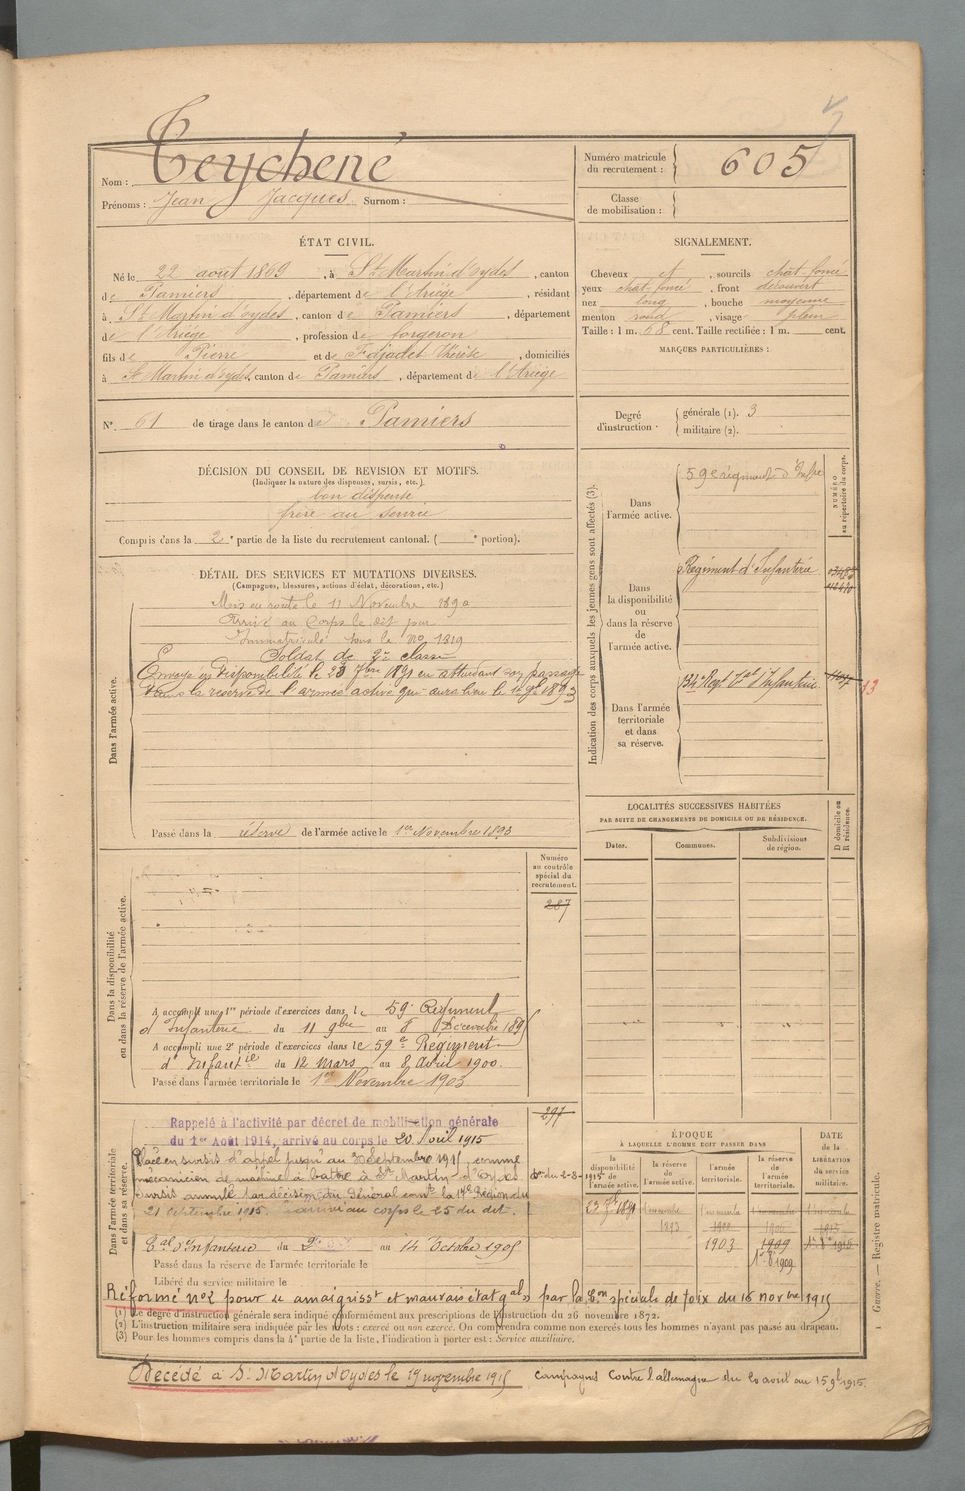 Nom : Teychené
Prénoms : Jean Jacques Surnom :
Numéro matricule du recrutement : 605
Classe de mobilisation :
ÉTAT CIVIL.
Né le 22 août 1869, à St Martin d'oydes, canton
de Pamiers, département de l'Ariège, résidant
à St Martin d'oydes, canton de Pamiers, département
de l'Ariège, profession de forgeron
fils de Pierre et de Fajadet Thérèse, domiciliés
à St Martin d'oydes, canton de Pamiers, département de l'Ariège
N°. 61 de tirage dans le canton de Pamiers
SIGNALEMENT.
Cheveux et, sourcils chat-foncé
yeux chat-foncé, front découvert
nez long, bouche moyenne
menton rond, visage plein
Taille : 1 m. 68 cent. Taille rectifiée : 1 m. cent.
MARQUES PARTICULIÈRES :
Degré d'instruction : générale (1). 3
militaire (2).
DÉCISION DU CONSEIL DE REVISION ET MOTIFS.
(Indiquer la nature des dispenses, sursis, etc.)
bon dispensé
frère au service
Compris dans la 2e partie de la liste du recrutement cantonal. ( e portion).
DÉTAIL DES SERVICES ET MUTATIONS DIVERSES.
(Campagnes, blessures, actions d'éclat, décorations, etc.)
Dans l'armée active.
Mis en route le 11 Novembre 1890
Arrivé au Corps le dit jour
Immatriculé sous le No 1319
Soldat de 2e classe
Envoyé en disponibilité le 23 7bre 1891 en attendant son passage
dans la réserve de l'armée active qui aura lieu le 1er 9bre 1893
Passé dans la réserve de l'armée active le 1er Novembre 1893
Indication des corps auxquels les jeunes gens sont affectés (3).
NUMÉRO au répertoire du corps.
Dans l'armée active.
59e régiment d'Infrie
Dans la disponibilité ou dans la réserve de l'armée active.
Régiment d'Infanterie
Dans l'armée territoriale et dans sa réserve.
134e Regt Tal d'Infanterie
13
LOCALITÉS SUCCESSIVES HABITÉES
PAR SUITE DE CHANGEMENTS DE DOMICILE OU DE RÉSIDENCE.
Dates.
Communes.
Subdivisions de région.
D domicile ou R résidence.
Dans la disponibilité ou dans la réserve de l'armée active.
Numéro au contrôle spécial du recrutement.
287
A accompli une 1re période d'exercices dans le 59e Régiment
d'Infanterie du 11 9bre au 8 Décembre 189
A accompli une 2e période d'exercices dans le 59e Régiment
d'Infanterie du 12 mars au 8 Avril 1900
Passé dans l'armée territoriale le 1er Novembre 1903
Dans l'armée territoriale et dans sa réserve.
297
Rappelé à l'activité par décret de mobilisation générale
du 1er Août 1914, arrivé au corps le 20 Avril 1915
Placé en sursis d'appel jusqu'au 30 Septembre 1915, comme
mécanicien de machine à battre à St Martin d'Oydes. Don du 2-8-1915
Sursis annulé par décision du Général comt la 17e Région du
21 Septembre 1915. Arrivé au corps le 25 du dit.
Tal d'Infanterie du au 14 Octobre 1905
Passé dans la réserve de l'armée territoriale le
Libéré du service militaire le
ÉPOQUE
À LAQUELLE L'HOMME DOIT PASSER DANS
la disponibilité de l'armée active.
la réserve de l'armée active.
l'armée territoriale.
la réserve de l'armée territoriale.
DATE de la LIBÉRATION du service militaire.
23 7bre 1891
1er novembre 1893
1er novembre 1900
1903
1er novembre 1906
1909
1er 8bre 1909
1er novembre 1915
Réformé no2 pour « amaigrisst et mauvais état gal » par la Con spéciale de Foix du 16 novbre 1915
(1) Le degré d'instruction générale sera indiqué conformément aux prescriptions de l'instruction du 26 novembre 1872.
(2) L'instruction militaire sera indiquée par les mots : exercé ou non exercé. On comprendra comme non exercés tous les hommes n'ayant pas passé au drapeau.
(3) Pour les hommes compris dans la 4e partie de la liste, l'indication à porter est : Service auxiliaire.
Guerre. — Registre matricule.
Décédé à St Martin d'Oydes le 19 novembre 1915
Campagnes Contre l'allemagne du 20 août au 15 9bre 1915.